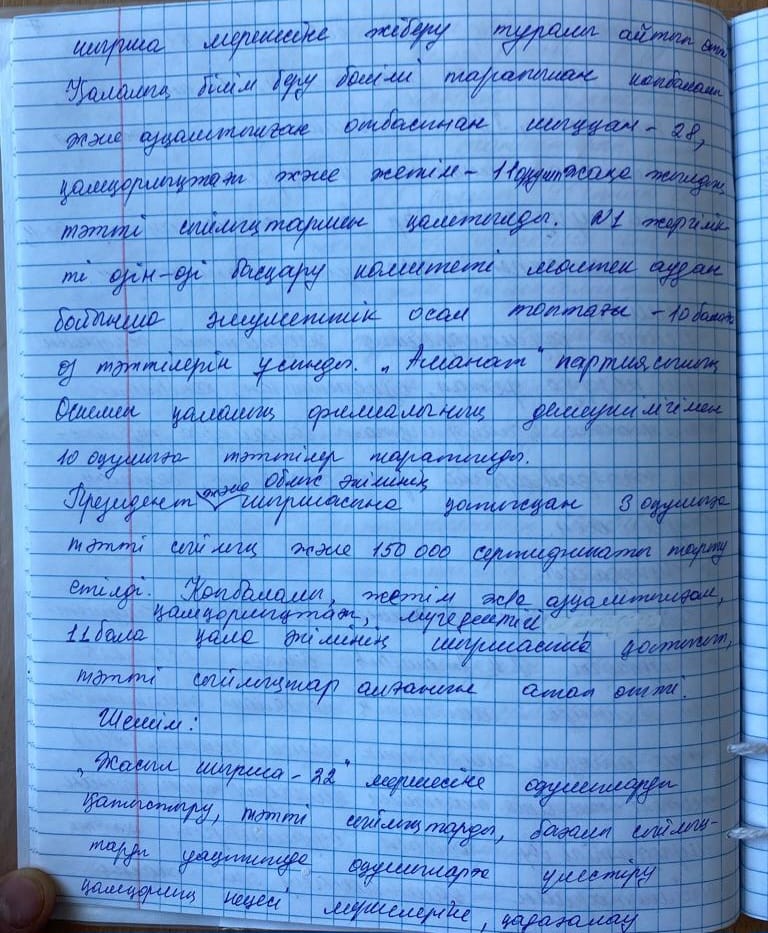 шырша мерекесіне жіберу туралы айтып өтті
Қаланың білім беру бөлімі тарапынан көпбалалы
және азқамтылған отбасынан шыққан - 28,
қамқорлықтағы және жетім - 11 оқушы жаңа жылдық
тәтті сыйлықтармен қамтылды. №1 жергілік-
ті өзін-өзі басқару комитеті мөлтек аудан
бойынша әлеуметтік осал топтағы - 10 балаға
өз тәттілерін ұсынды. „Аманат" партиясының
Өскемен қалалық филиалының демеушілігімен
10 оқушыға тәттілер таратылды.
Президент және облыс әкімінің шыршасына қатысқан 3 оқушыға
тәтті сыйлық және 150 000 сертификаты тарту
етілді. Көпбалалы, жетім және азқамтылған,
қамқорлықтағы, мүгедектігі
11 бала қала әкімінің шыршасына қатысып,
тәтті сыйлықтар алғанын атап өтті.
Шешім:
„Жасыл шырша - 22" мерекесіне оқушыларды
қатыстыру, тәтті сыйлықтарды, бағалы сыйлық-
тарды уақытында оқушыларға үлестіру
қамқорлық кеңесі мүшелеріне, қадағалау